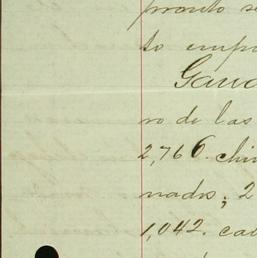 pronto se
to emp
Gana
ro de las
2,766. chi
nados; 2
1,042. cab